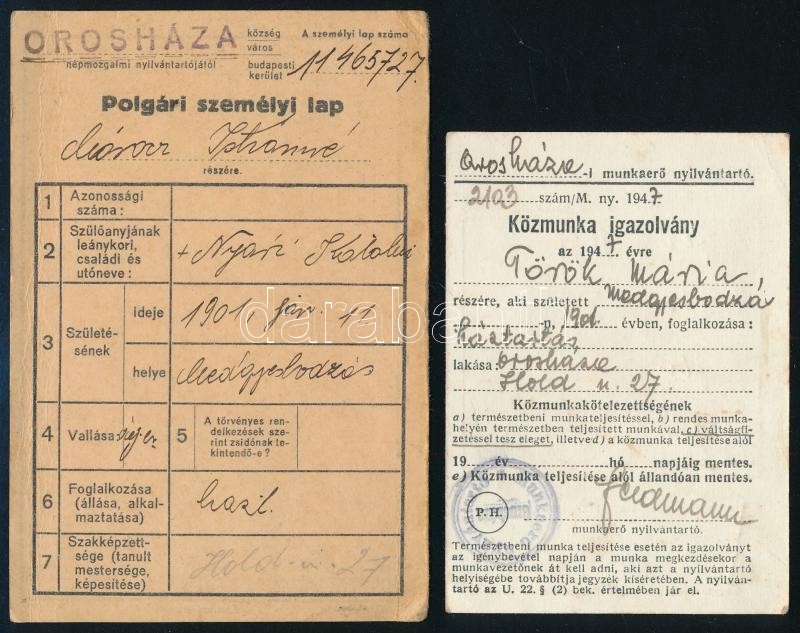 OROSHÁZA
község
város
népmozgalmi nyilvántartójától
budapesti
kerület
A személyi lap száma
11465727.
Polgári személyi lap
Istvánné
részére.
1 Azonossági
száma:
2 Szülőanyjának
leánykori,
családi és
utóneve:
+ Nyári Katalin
3 Születé-
sének
ideje
1901. jan. 11
helye
Medgyesbodzás
4 Vallása:
5 A törvényes ren-
delkezések sze-
rint zsidónak te-
kintendő-e?
6 Foglalkozása
(állása, alkal-
maztatása)
7 Szakképzett-
sége (tanult
mestersége,
képesítése)
Hold u. 27
Orosháza -i munkaerő nyilvántartó.
2103 szám/M. ny. 1947.
Közmunka igazolvány
az 1947 évre
Török Mária,
részére, aki született Medgyesbodzá
-n, 1901 évben, foglalkozása:
háztartás
lakása: Orosháza
Hold u. 27.
Közmunkakötelezettségének
a) természetbeni munkateljesítéssel, b) rendes munka-
helyén természetben teljesített munkával, c) váltságfi-
zetéssel tesz eleget, illetve d) a közmunka teljesítése alól
19 év hó napjáig mentes.
e) Közmunka teljesítése alól állandóan mentes.
P. H.
munkaerő nyilvántartó.
Természetbeni munka teljesítése esetén az igazolványt
az igénybevétel napján a munka megkezdésekor a
munkavezetőnek át kell adni, aki azt a nyilvántartó
helyiségébe továbbítja jegyzék kíséretében. A nyilván-
tartó az U. 22. § (2) bek. értelmében jár el.
darabanth.com